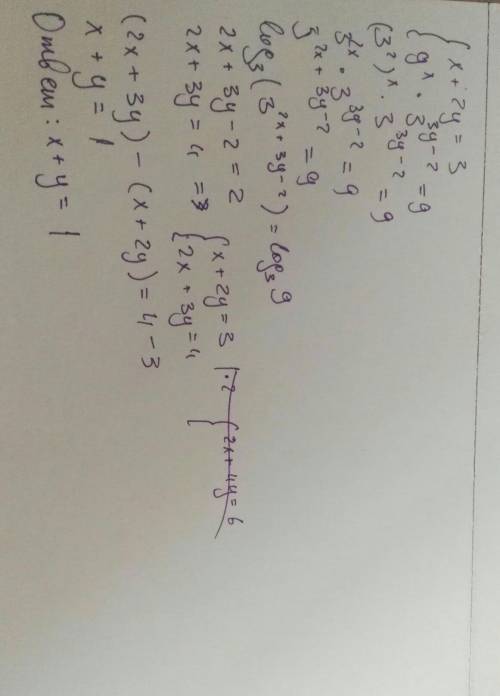 { x + 2y = 3
9^x · 3^{3y-2} = 9
(3²)^x · 3^{3y-2} = 9
3^{2x} · 3^{3y-2} = 9
3^{2x+3y-2} = 9
log₃(3^{2x+3y-2}) = log₃9
2x + 3y - 2 = 2
2x + 3y = 4 => { x + 2y = 3 | · 2 { 2x + 4y = 6
2x + 3y = 4
(2x + 3y) - (x + 2y) = 4 - 3
x + y = 1
Ответ: x + y = 1